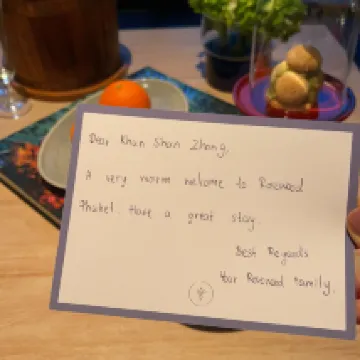 Dear Khun Shan Zhang,
A very warm welcome to Rosewood
Phuket. Have a great stay.
Best Regards
Your Rosewood Family.